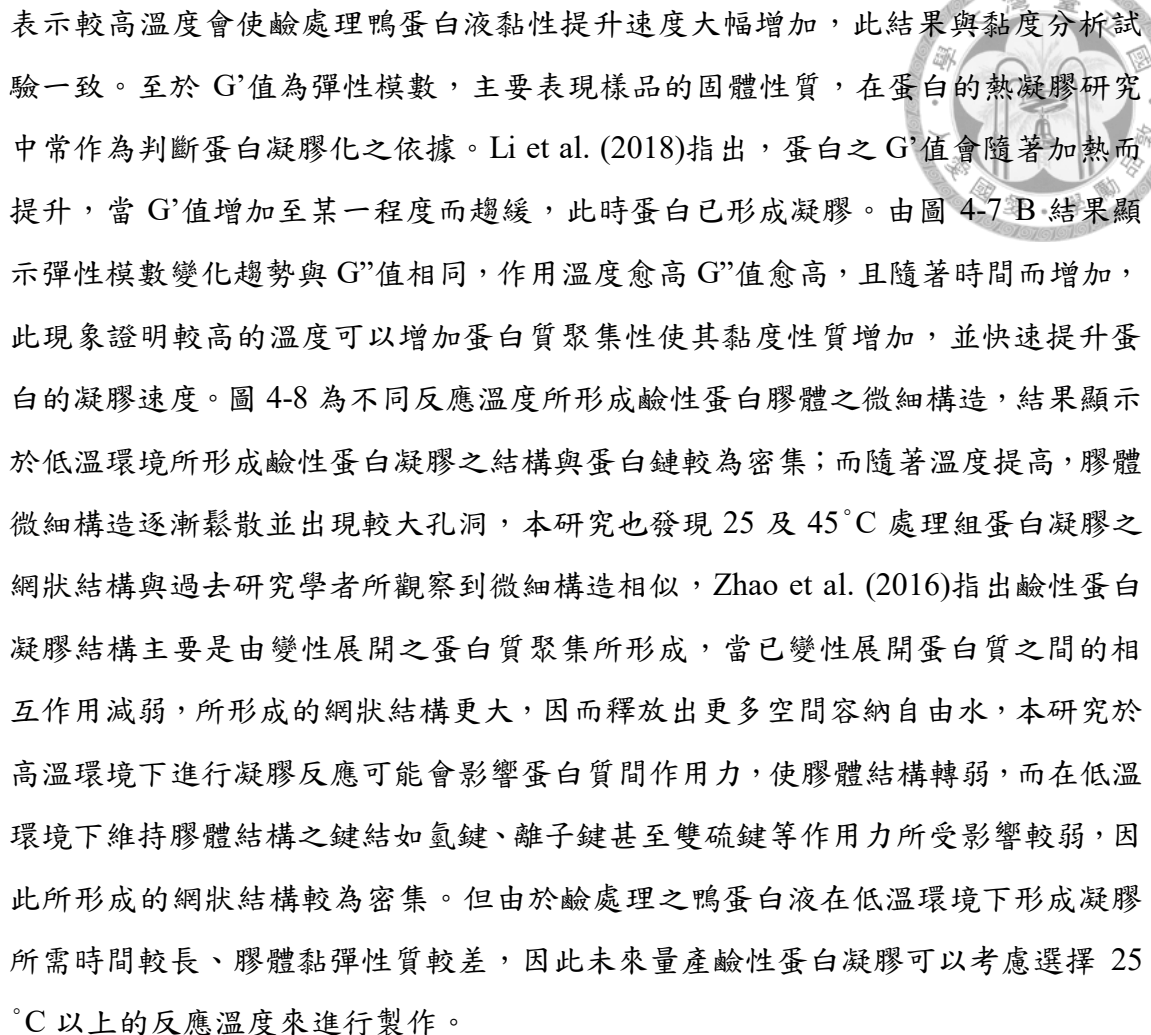 表示較高溫度會使鹼處理鴨蛋白液黏性提升速度大幅增加，此結果與黏度分析試
驗一致。至於 G’值為彈性模數，主要表現樣品的固體性質，在蛋白的熱凝膠研究
中常作為判斷蛋白凝膠化之依據。Li et al. (2018)指出，蛋白之 G’值會隨著加熱而
提升，當 G’值增加至某一程度而趨緩，此時蛋白已形成凝膠。由圖 4-7 B 結果顯
示彈性模數變化趨勢與 G”值相同，作用溫度愈高 G”值愈高，且隨著時間而增加，
此現象證明較高的溫度可以增加蛋白質聚集性使其黏度性質增加，並快速提升蛋
白的凝膠速度。圖 4-8 為不同反應溫度所形成鹼性蛋白膠體之微細構造，結果顯示
於低溫環境所形成鹼性蛋白凝膠之結構與蛋白鏈較為密集；而隨著溫度提高，膠體
微細構造逐漸鬆散並出現較大孔洞，本研究也發現 25 及 45˚C 處理組蛋白凝膠之
網狀結構與過去研究學者所觀察到微細構造相似，Zhao et al. (2016)指出鹼性蛋白
凝膠結構主要是由變性展開之蛋白質聚集所形成，當已變性展開蛋白質之間的相
互作用減弱，所形成的網狀結構更大，因而釋放出更多空間容納自由水，本研究於
高溫環境下進行凝膠反應可能會影響蛋白質間作用力，使膠體結構轉弱，而在低溫
環境下維持膠體結構之鍵結如氫鍵、離子鍵甚至雙硫鍵等作用力所受影響較弱，因
此所形成的網狀結構較為密集。但由於鹼處理之鴨蛋白液在低溫環境下形成凝膠
所需時間較長、膠體黏彈性質較差，因此未來量產鹼性蛋白凝膠可以考慮選擇 25
˚C 以上的反應溫度來進行製作。